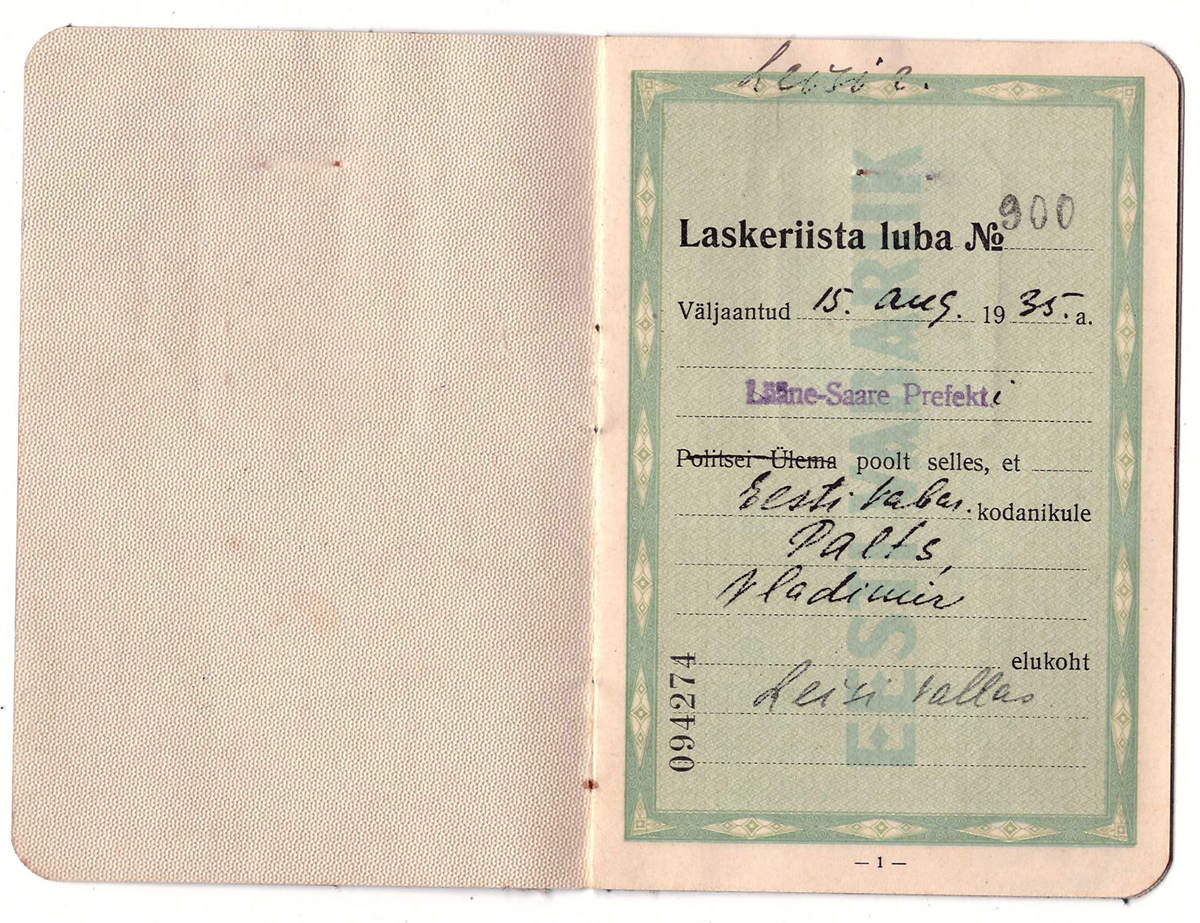 Leisi v.
Laskeriista luba № 900
Väljaantud 15. aug. 1935. a.
Lääne-Saare Prefekti
Politsei Ülema poolt selles, et
Eesti Vabar. kodanikule
Palts,
Vladimir
elukoht
Leisi vallas
094274
EESTI VABARIIK
— 1 —